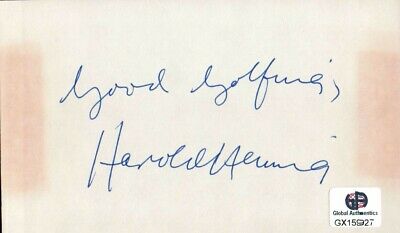 Good Golfing,
Harold Henning
Global Authentics
GX15927